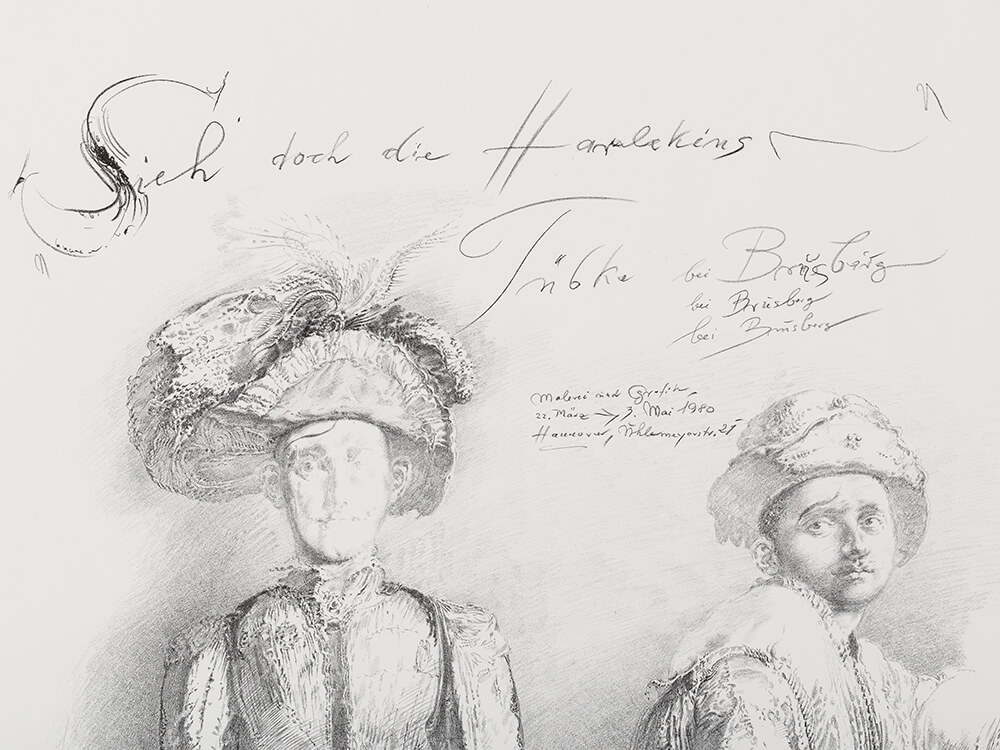 "Sieh' doch die Harlekins"
Tübke bei Brusberg
bei Brusberg
bei Brusberg
Malerei und Grafik,
22. März → 3. Mai 1980
Hannover, Uhlemeyerstr. 21